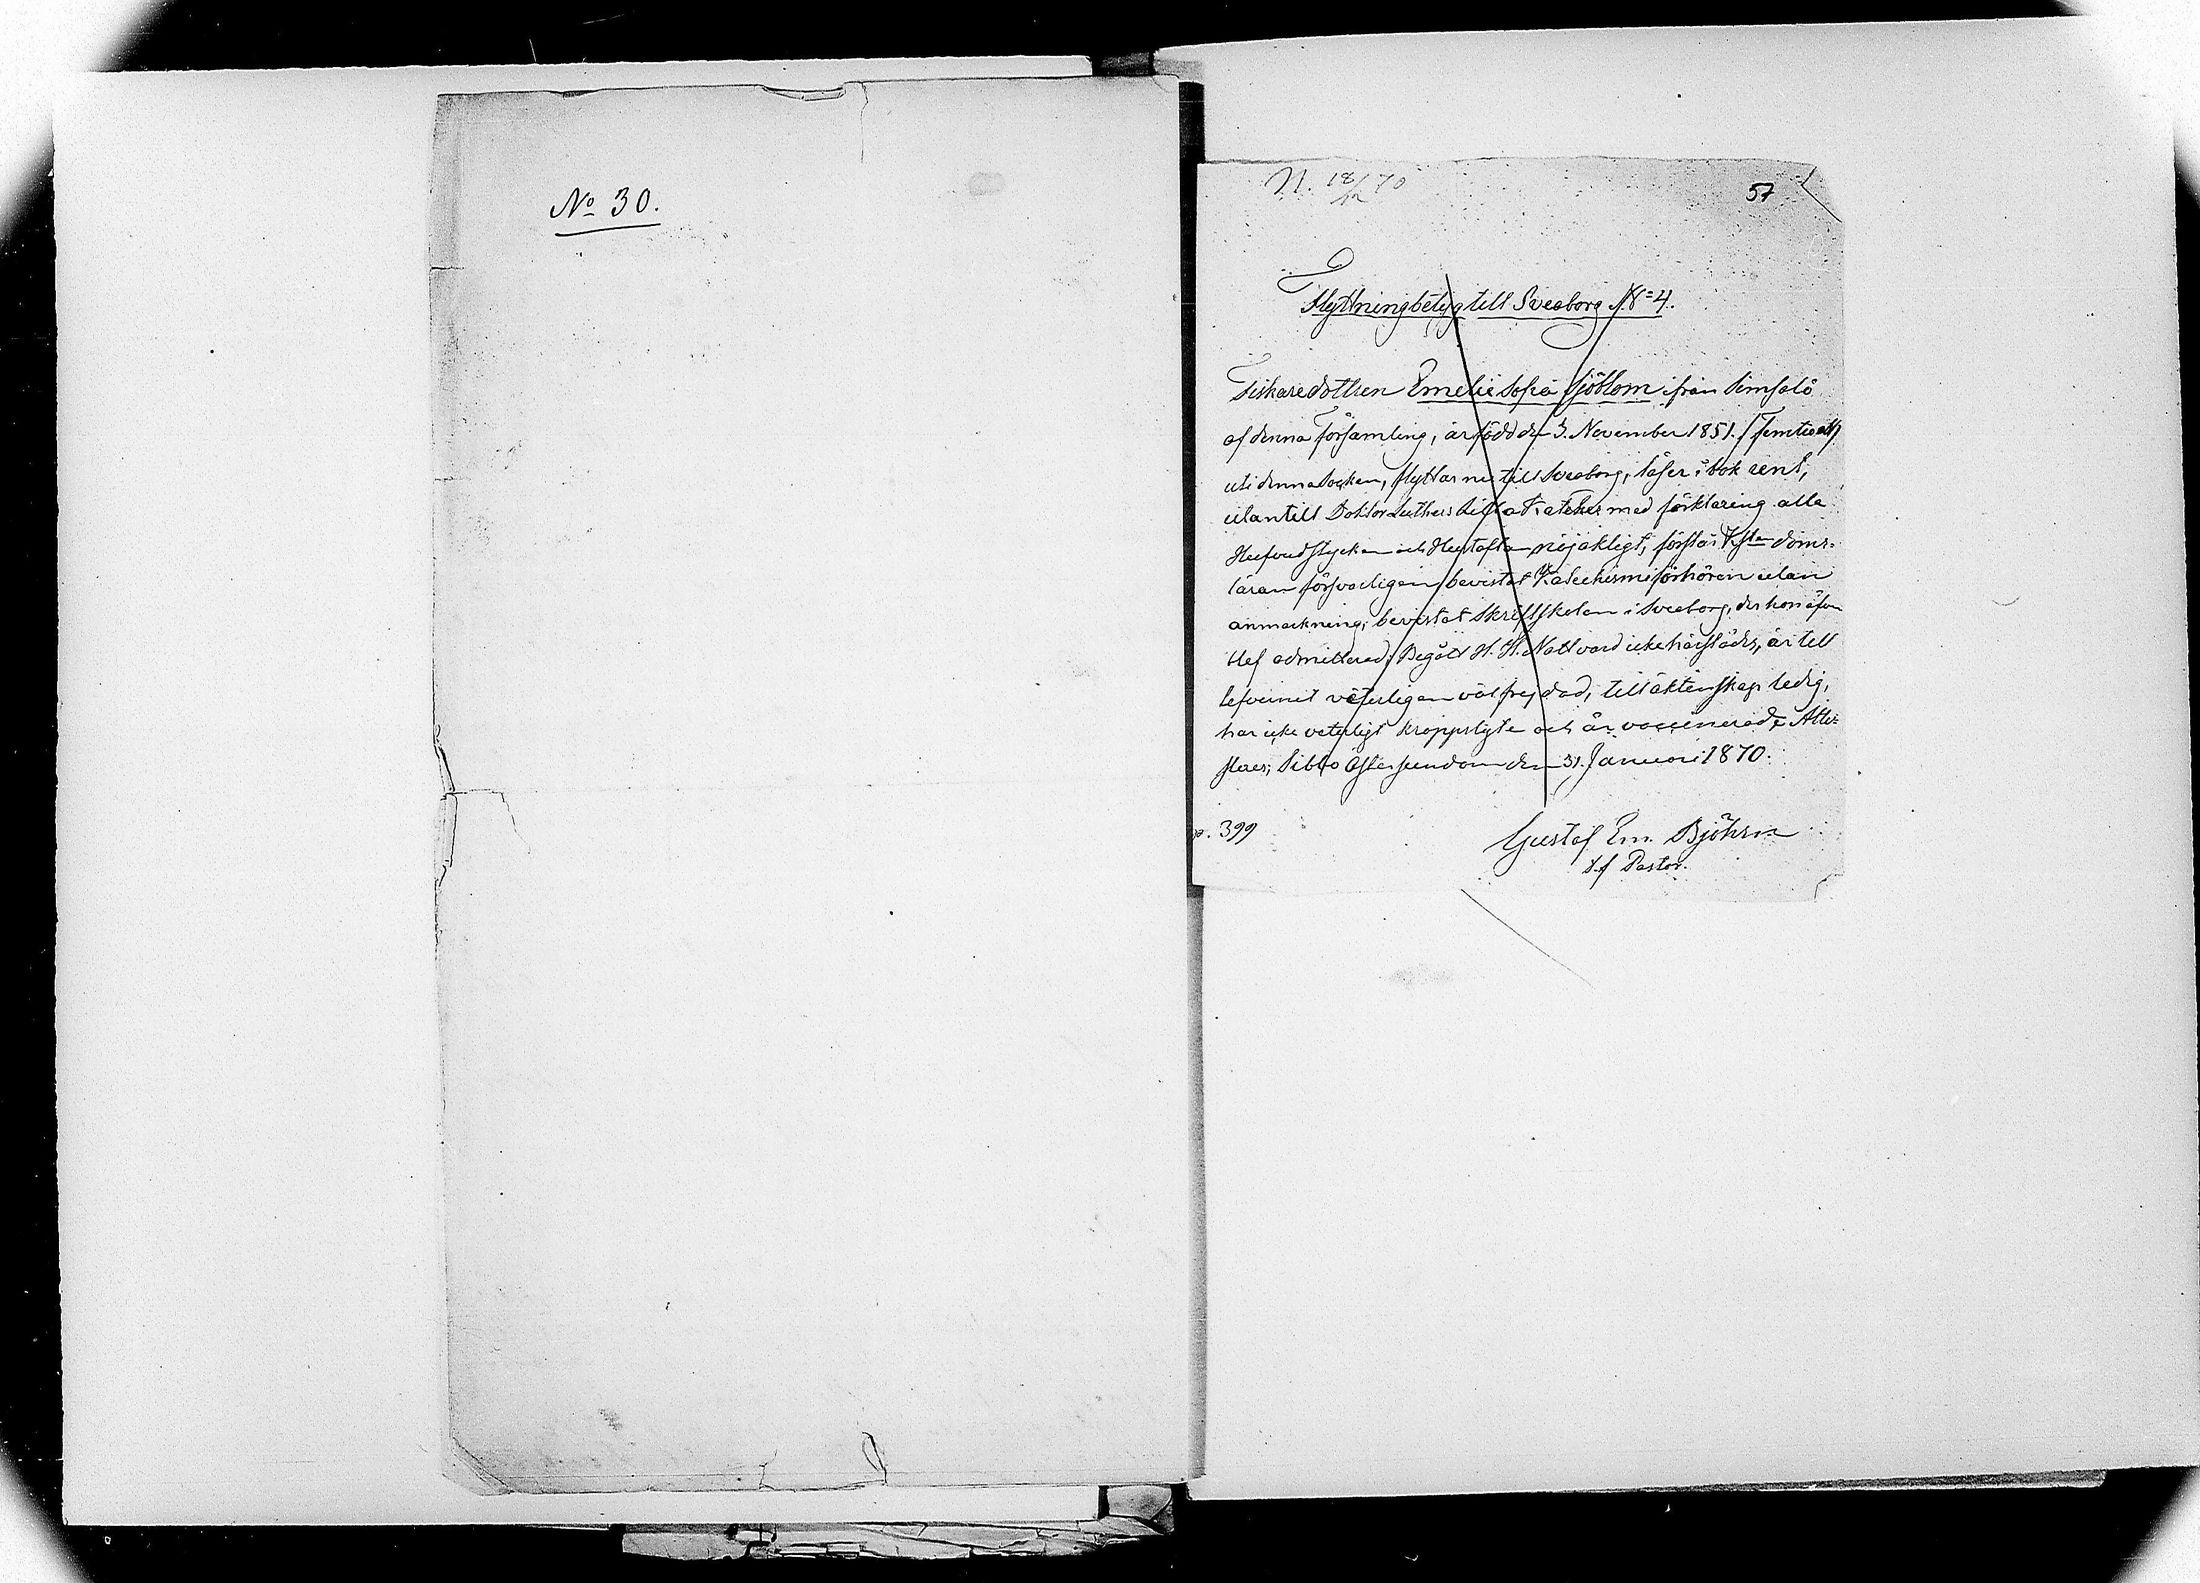 No 30.
N. 18/12 70
57
Flyttningbetyg till Sveaborg No 4.
Fiskaredottren Emelie Sofia Sjöblom ifrån Simsalö
af denna Församling, är född den 3. November 1851. /Femtioett/
uti denna Socken, flyttar nu till Sveaborg, läser i bok rent,
utantill Doktor Luthers Lilla Kateches med förklaring alla
Hufvudstycken och Hustaflan nöjaktigt, förstår Kristendoms-
läran försvarligen, bevistat Katechismiförhören utan
anmärkning, bevistat Skriftskolan i Sveaborg, der hon äfven
blef admitterad; Begått H. H. Nattvard icke härstädes, är till
lefvernet veterligen välfrejdad, till äktenskap ledig,
har icke veterligt kroppslyte och är vaccinerad, Atte-
steras; Sibbo Östersundom den 31. Januari 1870.
p. 399
Gustaf Em. Björhn
t.f Pastor.